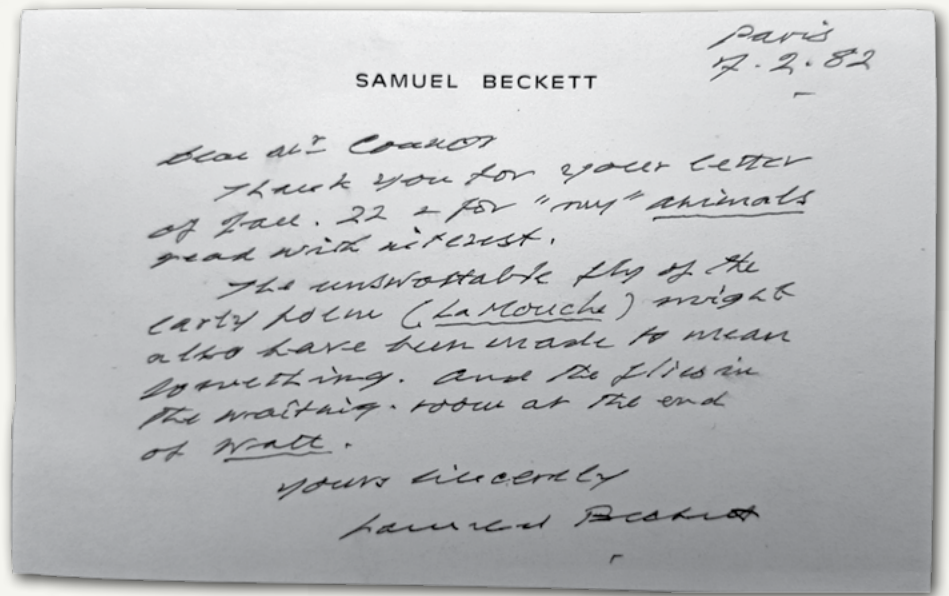 Paris
7.2.82
SAMUEL BECKETT
Dear Mr Connor
Thank you for your letter
of Jan. 22 & for "my" animals
read with interest.
The unswottable fly of the
early poem (La Mouche) might
also have been made to mean
something. And the flies in
the waiting-room at the end
of Watt.
Yours sincerely
Samuel Beckett